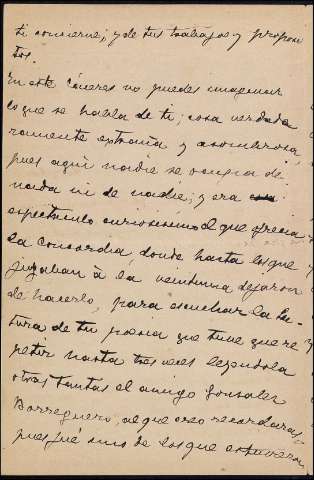 te concierne; y de tus trabajos y propósi
tos.
En este Cáceres no puedes imaginar
lo que se habla de ti; cosa verdade
ramente extraña y asombrosa,
pues aquí nadie se ocupa de
nada ni de nadie; y era
espectáculo curiosísimo el que ofrecía
La Concordia, donde hasta los que
jugaban á la veintiuna dejaron
de hacerlo, para escuchar la lec
tura de tu poesía que tuve que re
petir hasta tres veces leyéndola
otras tantas el amigo Gonzalez
Borreguero, al que creo recordarás
pues fué uno de los que estuvieron